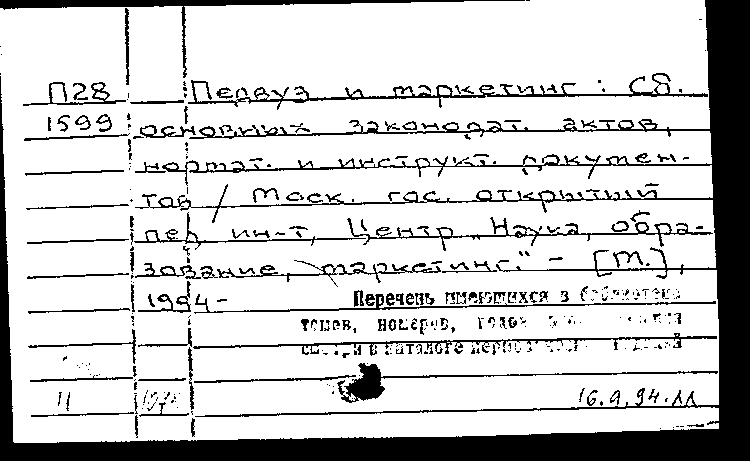 П28 Педвуз и маркетинг : Сб.
1599 основных законодат. актов,
нормат. и инструкт. докумен-
тов / Моск. гос. открытый
пед ин-т, Центр „Наука, обра-
зование, маркетинг." - [М.],
1994-
Перечень имеющихся в библиотеке
томов, номеров, годов
в каталоге
16.9.94.